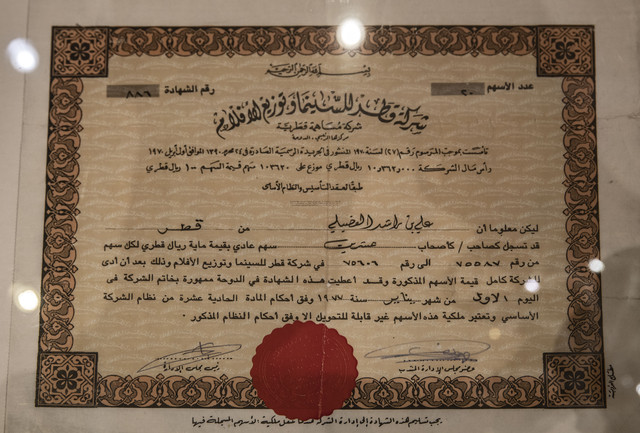 بسم الله الرحمن الرحيم
عدد الأسهم ٢٠ رقم الشهادة ٨٨٦
شركة قطر للسينما وتوزيع الأفلام
شركة مساهمة قطرية
مركزها الرئيسي - الدوحة
تأسست بموجب المرسوم رقم (٢٧) لسنة ١٩٧٠ المنشور في الجريدة الرسمية الصادرة في ٢٤ محرم ١٣٩٠ الموافق أول أبريل ١٩٧٠
رأس مال الشركة ١٠٫٣٦٢٫٠٠٠ ريال قطري موزع على ١٠٣٦٢٠ سهم قيمة السهم ١٠٠ ريال قطري
طبقا لعقد التأسيس والنظام الأساسي
ليكن معلوما أن علي بن راشد الفضيلي من قطر
قد تسجل كصاحب / كأصحاب عشرين سهم عادي بقيمة ماية ريال قطري لكل سهم
من رقم ٧٥٥٨٧ الى رقم ٧٥٦٠٦ في شركة قطر للسينما وتوزيع الأفلام وذلك بعد أن أدى
للشركة كامل قيمة الأسهم المذكورة وقد أعطيت هذه الشهادة في الدوحة ممهورة بخاتم الشركة في
اليوم الاول من شهر يناير سنة ١٩٧٧ وفق أحكام المادة الحادية عشرة من نظام الشركة
الأساسي وتعتبر ملكية هذه الأسهم غير قابلة للتحويل الا وفق أحكام النظام المذكور .
عضو مجلس الإدارة المنتدب رئيس مجلس الإدارة
يجب تسليم هذه الشهادة إلى إدارة الشركة نقل ملكية الأسهم المسجلة فيها